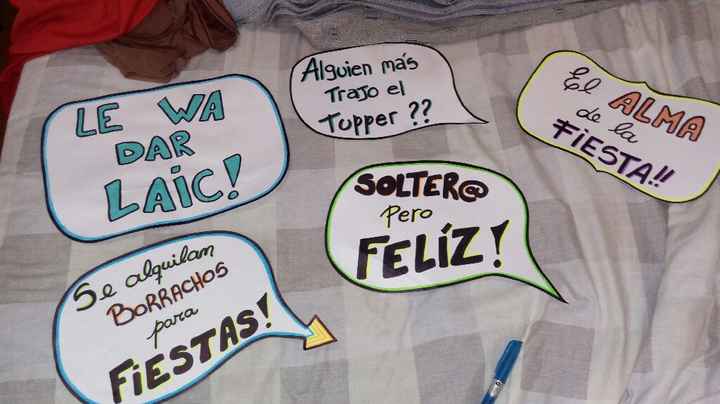 LE WA
DAR
LAIC!
Alguien más
Trajo el
Tupper ??
El ALMA
de la
FiESTA!!
SOLTER@
Pero
FELÍZ!
Se alquilan
BORRACHOS
para
FiESTAS!